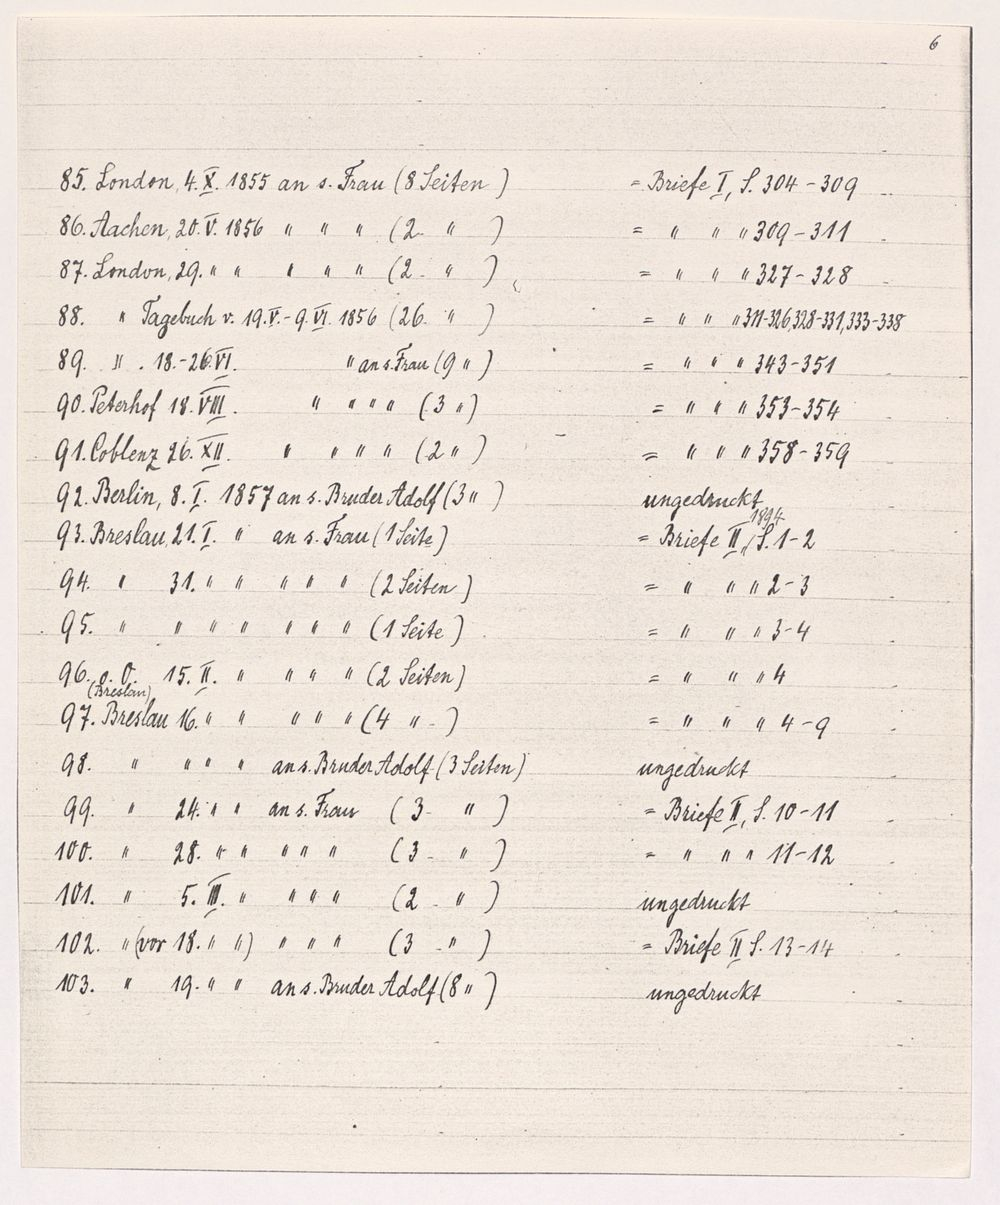 6
85. London, 4. X. 1855 an s. Frau (8 Seiten) = Briefe I, S. 304-309
86. Aachen, 20. V. 1856 " " " (2 " ) = " " " 309-311
87. London, 29. " " " " " (2 " ) = " " " 327-328
88. " Tagebuch v. 19. V. - 9. VI. 1856 (26 " ) = " " " 311-326, 328-331, 333-338
89. " . 18.-26. VI. " an s. Frau (9 " ) = " " " 343-351
90. Peterhof 18. VIII. " " " " (3 " ) = " " " 353-354
91. Coblenz 26. XII. " " " " (2 " ) = " " " 358-359
92. Berlin, 8. I. 1857 an s. Bruder Adolf (3 " ) ungedruckt
93. Breslau, 21. I. " an s. Frau (1 Seite) = Briefe II, 1894, S. 1-2
94. " 31. " " " " " (2 Seiten) = " " " 2-3
95. " " " " " " " (1 Seite) = " " " 3-4
96. o. O. 15. II. " " " " (2 Seiten) = " " " 4
(Breslau)
97. Breslau 16. " " " " " (4 " ) = " " " 4-9
98. " " " " an s. Bruder Adolf (3 Seiten) ungedruckt
99. " 24. " " an s. Frau (3 " ) = Briefe II, S. 10-11
100. " 28. " " " " " (3 " ) = " " " 11-12
101. " 5. III. " " " " (2 " ) ungedruckt
102. " (vor 18. " ") " " " (3 " ) = Briefe II S. 13-14
103. " 19. " " an s. Bruder Adolf (8 " ) ungedruckt